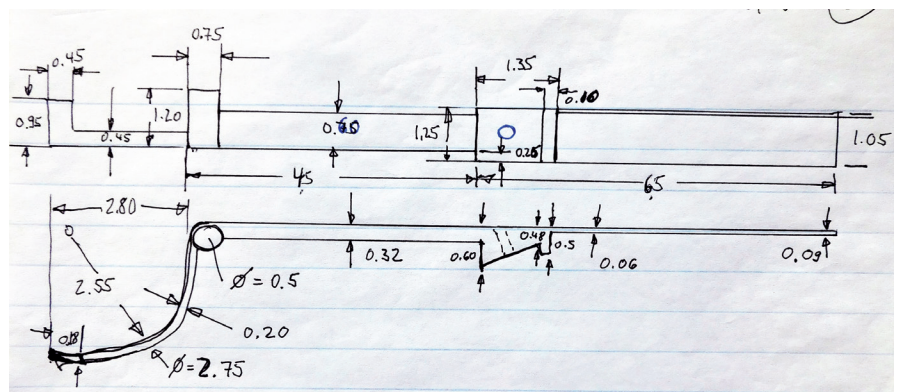 0.75
0.45
1.35
0.10
0.95
0.45
1.20
1.25
0.25
1.05
45
65
2.80
0.32
0.60
0.48
0.5
0.06
0.09
Ø=0.5
2.55
0.20
0.18
Ø=2.75